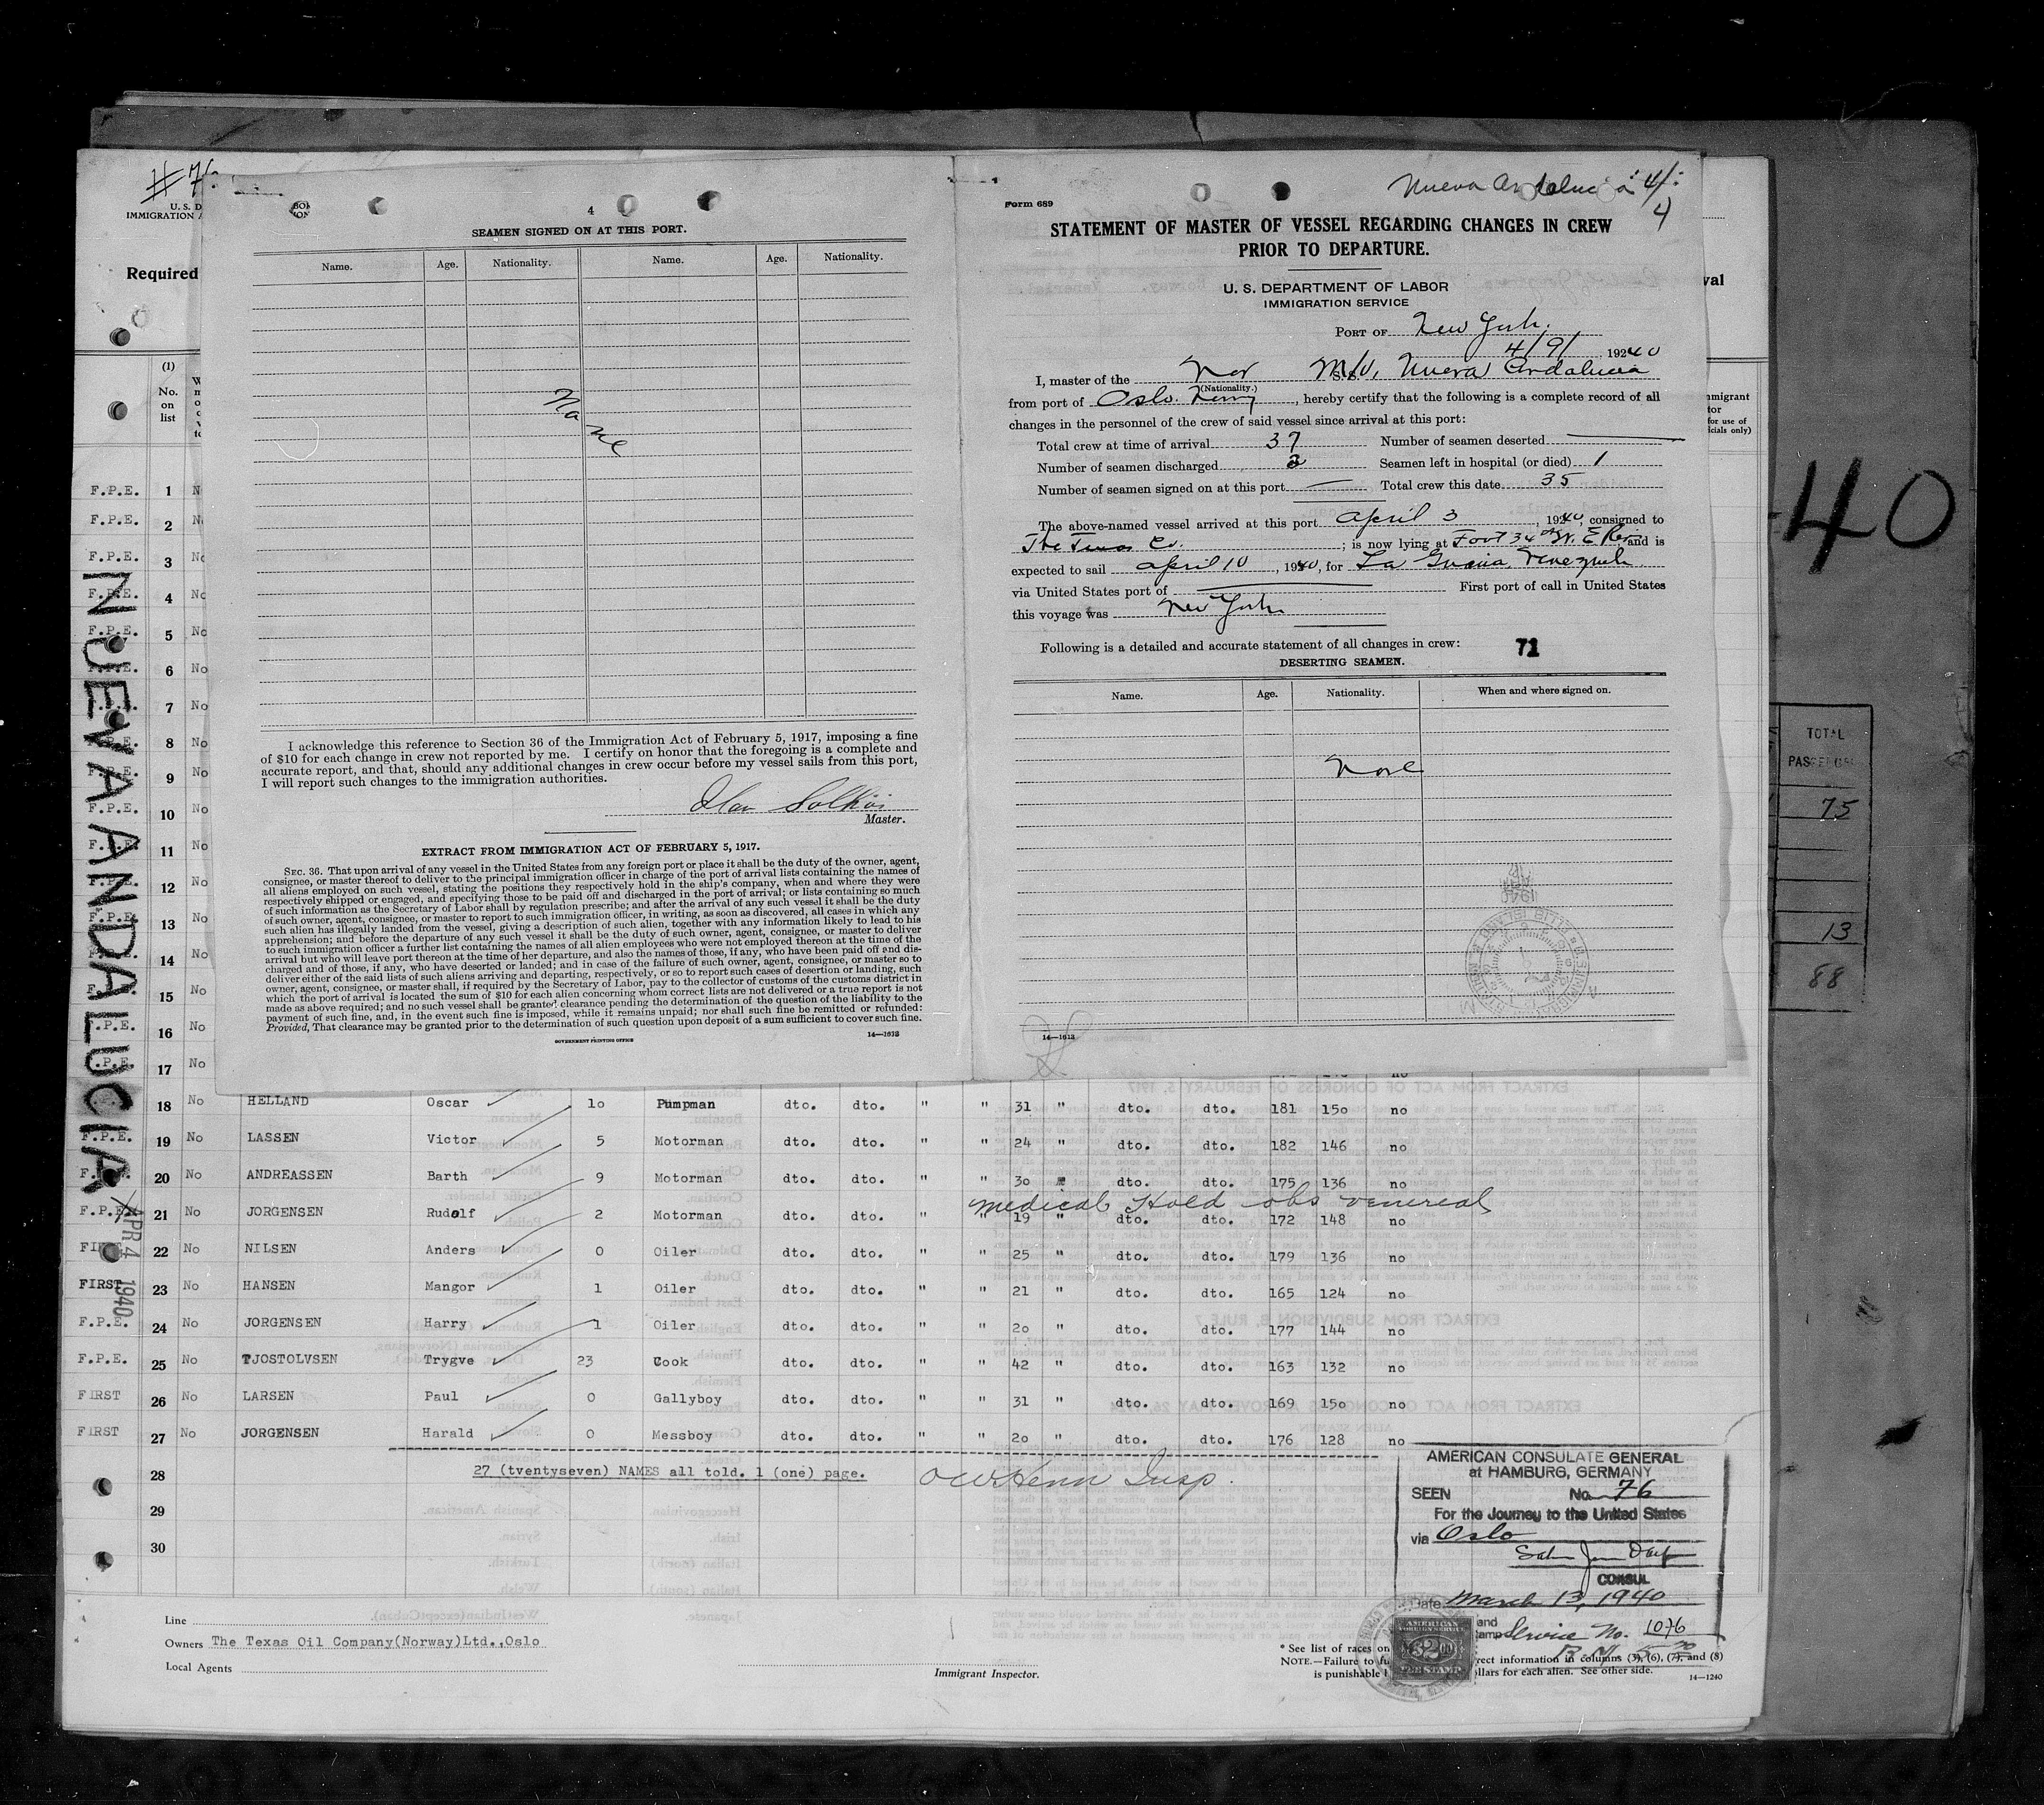 #76
U. S. D
IMMIGRATION
Required
4
SEAMEN SIGNED ON AT THIS PORT.
Name. Age. Nationality. Name. Age. Nationality.
None
I acknowledge this reference to Section 36 of the Immigration Act of February 5, 1917, imposing a fine
of $10 for each change in crew not reported by me. I certify on honor that the foregoing is a complete and
accurate report, and that, should any additional changes in crew occur before my vessel sails from this port,
I will report such changes to the immigration authorities.
Master.
EXTRACT FROM IMMIGRATION ACT OF FEBRUARY 5, 1917.
SEC. 36. That upon arrival of any vessel in the United States from any foreign port or place it shall be the duty of the owner, agent,
consignee, or master thereof to deliver to the principal immigration officer in charge of the port of arrival lists containing the names of
all aliens employed on such vessel, stating the positions they respectively hold in the ship's company, when and where they were
respectively shipped or engaged, and specifying those to be paid off and discharged in the port of arrival; or lists containing so much
of such information as the Secretary of Labor shall by regulation prescribe; and after the arrival of any such vessel it shall be the duty
of such owner, agent, consignee, or master to report to such immigration officer, in writing, as soon as discovered, all cases in which any
such alien has illegally landed from the vessel, giving a description of such alien, together with any information likely to lead to his
apprehension; and before the departure of any such vessel it shall be the duty of such owner, agent, consignee, or master to deliver
to such immigration officer a further list containing the names of all alien employees who were not employed thereon at the time of the
arrival but who will leave port thereon at the time of her departure, and also the names of those, if any, who have been paid off and dis-
charged and of those, if any, who have deserted or landed; and in case of the failure of such owner, agent, consignee, or master so to
deliver either of the said lists of such aliens arriving and departing, respectively, or so to report such cases of desertion or landing, such
owner, agent, consignee, or master shall, if required by the Secretary of Labor, pay to the collector of customs of the customs district in
which the port of arrival is located the sum of $10 for each alien concerning whom correct lists are not delivered or a true report is not
made as above required; and no such vessel shall be granted clearance pending the determination of the question of the liability to the
payment of such fine, and, in the event such fine is imposed, while it remains unpaid; nor shall such fine be remitted or refunded:
Provided, That clearance may be granted prior to the determination of such question upon deposit of a sum sufficient to cover such fine.
GOVERNMENT PRINTING OFFICE 14—1613
Nueva Andalucia 4/4
Form 689
STATEMENT OF MASTER OF VESSEL REGARDING CHANGES IN CREW
PRIOR TO DEPARTURE.
U. S. DEPARTMENT OF LABOR
IMMIGRATION SERVICE
PORT OF New York,
4/9/ 19240
I, master of the Nor M/V. Nueva Andalucia
(Nationality.)
from port of Oslo, , hereby certify that the following is a complete record of all
changes in the personnel of the crew of said vessel since arrival at this port:
Total crew at time of arrival 37 Number of seamen deserted —
Number of seamen discharged Seamen left in hospital (or died) 1
Number of seamen signed on at this port — Total crew this date 35
The above-named vessel arrived at this port April 3, 1940, consigned to
The Texas Co. ; is now lying at Foot 34th St. E River and is
expected to sail April 10, 1940, for La Guaira Venezuela
via United States port of First port of call in United States
this voyage was New York
Following is a detailed and accurate statement of all changes in crew: 71
DESERTING SEAMEN.
Name. Age. Nationality. When and where signed on.
None
14—1613
val
mmigrant
tor
for use of
icials only)
40
TOTAL
75
13
88
NUEVA ANDALUCIA
(1)
No.
on
list
F.P.E. 1 N
F.P.E. 2 N
F.P.E. 3 No
F.P.E. 4 No
F.P.E. 5 No
F.P.E. 6 No
F.P.E. 7 No
F.P.E. 8 No
F.P.E. 9 No
F.P.E. 10 No
F.P.E. 11 No
F.P.E. 12 No
F.P.E. 13 No
F.P.E. 14 No
F.P.E. 15 No
F.P.E. 16 No
F.P.E. 17 No
18 No HELLAND Oscar 1o Pumpman dto. dto. " " 31 " dto. dto. 181 15o no
F.P.E. 19 No LASSEN Victor 5 Motorman dto. dto. " " 24 " dto. dto. 182 146 no
F.P.E. 20 No ANDREASSEN Barth 9 Motorman dto. dto. " " 3o " dto. dto. 175 136 no
Medical Hold obs venereal
F.P.E. 21 No JORGENSEN Rudolf 2 Motorman dto. dto. " " 19 dto. dto. 172 148 no
FIRST 22 No NILSEN Anders 0 Oiler dto. dto. " " 25 " dto. dto. 179 136 no
FIRST 23 No HANSEN Mangor 1 Oiler dto. dto. " " 21 " dto. dto. 165 124 no
F.P.E. 24 No JORGENSEN Harry 1 Oiler dto. dto. " " 2o " dto. dto. 177 144 no
F.P.E. 25 No TJOSTOLVSEN Trygve 23 Cook dto. dto. " " 42 " dto. dto. 163 132 no
FIRST 26 No LARSEN Paul 0 Gallyboy dto. dto. " " 31 " dto. dto. 169 15o no
FIRST 27 No JORGENSEN Harald 0 Messboy dto. dto. " " 2o " dto. dto. 176 128 no
APR 4 1940
28 27 (tventyseven) NAMES all told. 1 (one) page.
29
30
AMERICAN CONSULATE GENERAL
at HAMBURG, GERMANY
SEEN No. 76
For the Journey to the United States
via Oslo
CONSUL
Date March 13, 1940
Service No. 1076
AMERICAN
FOREIGN SERVICE
FEE STAMP
Line
Owners The Texas Oil Company(Norway)Ltd.,Oslo
Local Agents
Immigrant Inspector.
* See list of races on
NOTE.—Failure to fu rect information in columns (3), (6), (7), and (8)
is punishable ollars for each alien. See other side.
14—1240